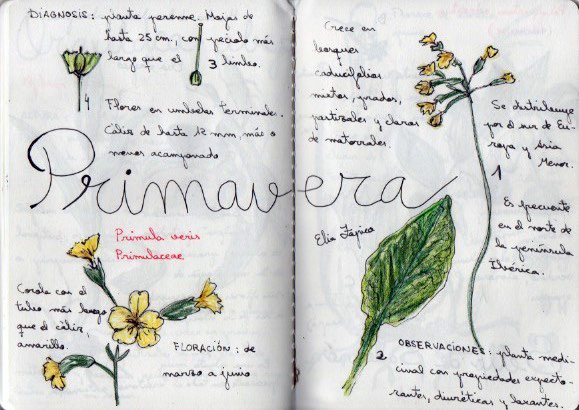 DIAGNOSIS: planta perenne. Hojas de
hasta 25 cm., con peciolo más
largo que el 3 limbo.
4
Flores en umbelas terminales.
Cáliz de hasta 12 mm, más o
menos acampanado
Primavera
Primula veris
Primulaceae
Corola con el
tubo más largo
que el cáliz,
amarillo.
FLORACIÓN: de
marzo a junio
Crece en
bosques
caducifolios
mixtos, prados,
pastizales y claros
de matorrales.
Se distribuye
por el sur de Eu-
ropa y Asia
Menor.
1
Es frecuente
en el norte de
la península
Ibérica.
2
OBSERVACIONES: planta medi-
cinal con propiedades expecto-
rantes, diuréticas y laxantes.